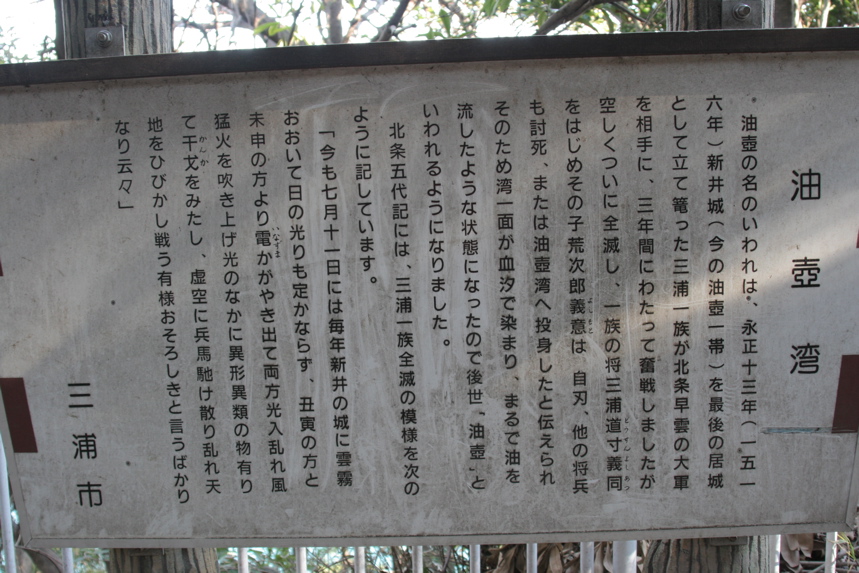 油壺湾
油壺の名のいわれは、永正十三年(一五一
六年)新井城(今の油壺一帯)を最後の居城
として立て篭った三浦一族が北条早雲の大軍
を相手に、三年間にわたって奮戦しましたが
空しくついに全滅し、一族の将三浦道寸義同
をはじめその子荒次郎義意は、自刃、他の将兵
も討死、または油壺湾へ投身したと伝えられ
そのため湾一面が血汐で染まり、まるで油を
流したような状態になったので後世「油壺」と
いわれるようになりました。
北条五代記には、三浦一族全滅の模様を次の
ように記しています。
「今も七月十一日には毎年新井の城に雲霧
おおいて日の光りも定かならず、丑寅の方と
未申の方より電かがやき出て両方光入乱れ風
猛火を吹き上げ光のなかに異形異類の物有り
て干戈をみたし、虚空に兵馬馳け散り乱れ天
地をひびかし戦う有様おそろしきと言うばかり
なり云々」
三浦市